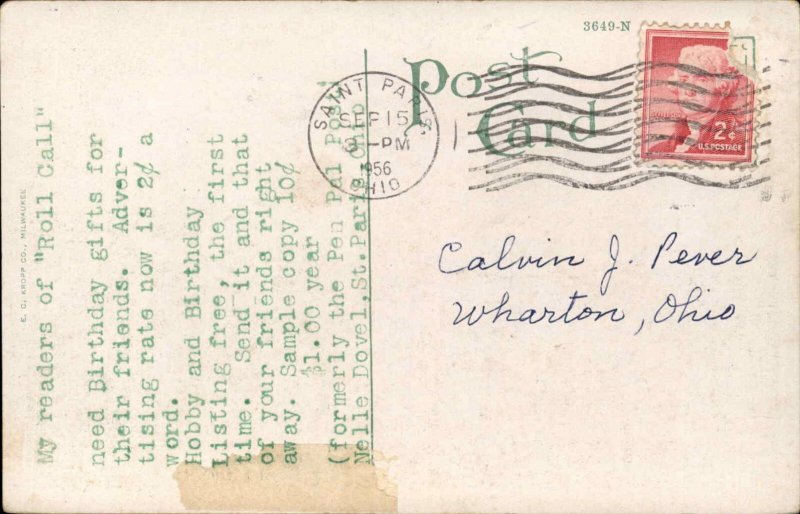 3649-N
Post
Card
SAINT PARIS,
SEP 15
-PM
1956
OHIO
2¢
U.S. POSTAGE
Calvin J. Pever
Wharton, Ohio
My readers of "Roll Call"
need Birthday gifts for
their friends. Adver-
tising rate now is 2¢ a
word.
Hobby and Birthday
Listing free, the first
time. Send it and that
of your friends right
away. Sample copy 10¢
$1.00 year
(formerly the Pen Pal Post)
Nelle Dovel, St. Paris, Ohio
E. C. KROPP CO., MILWAUKEE